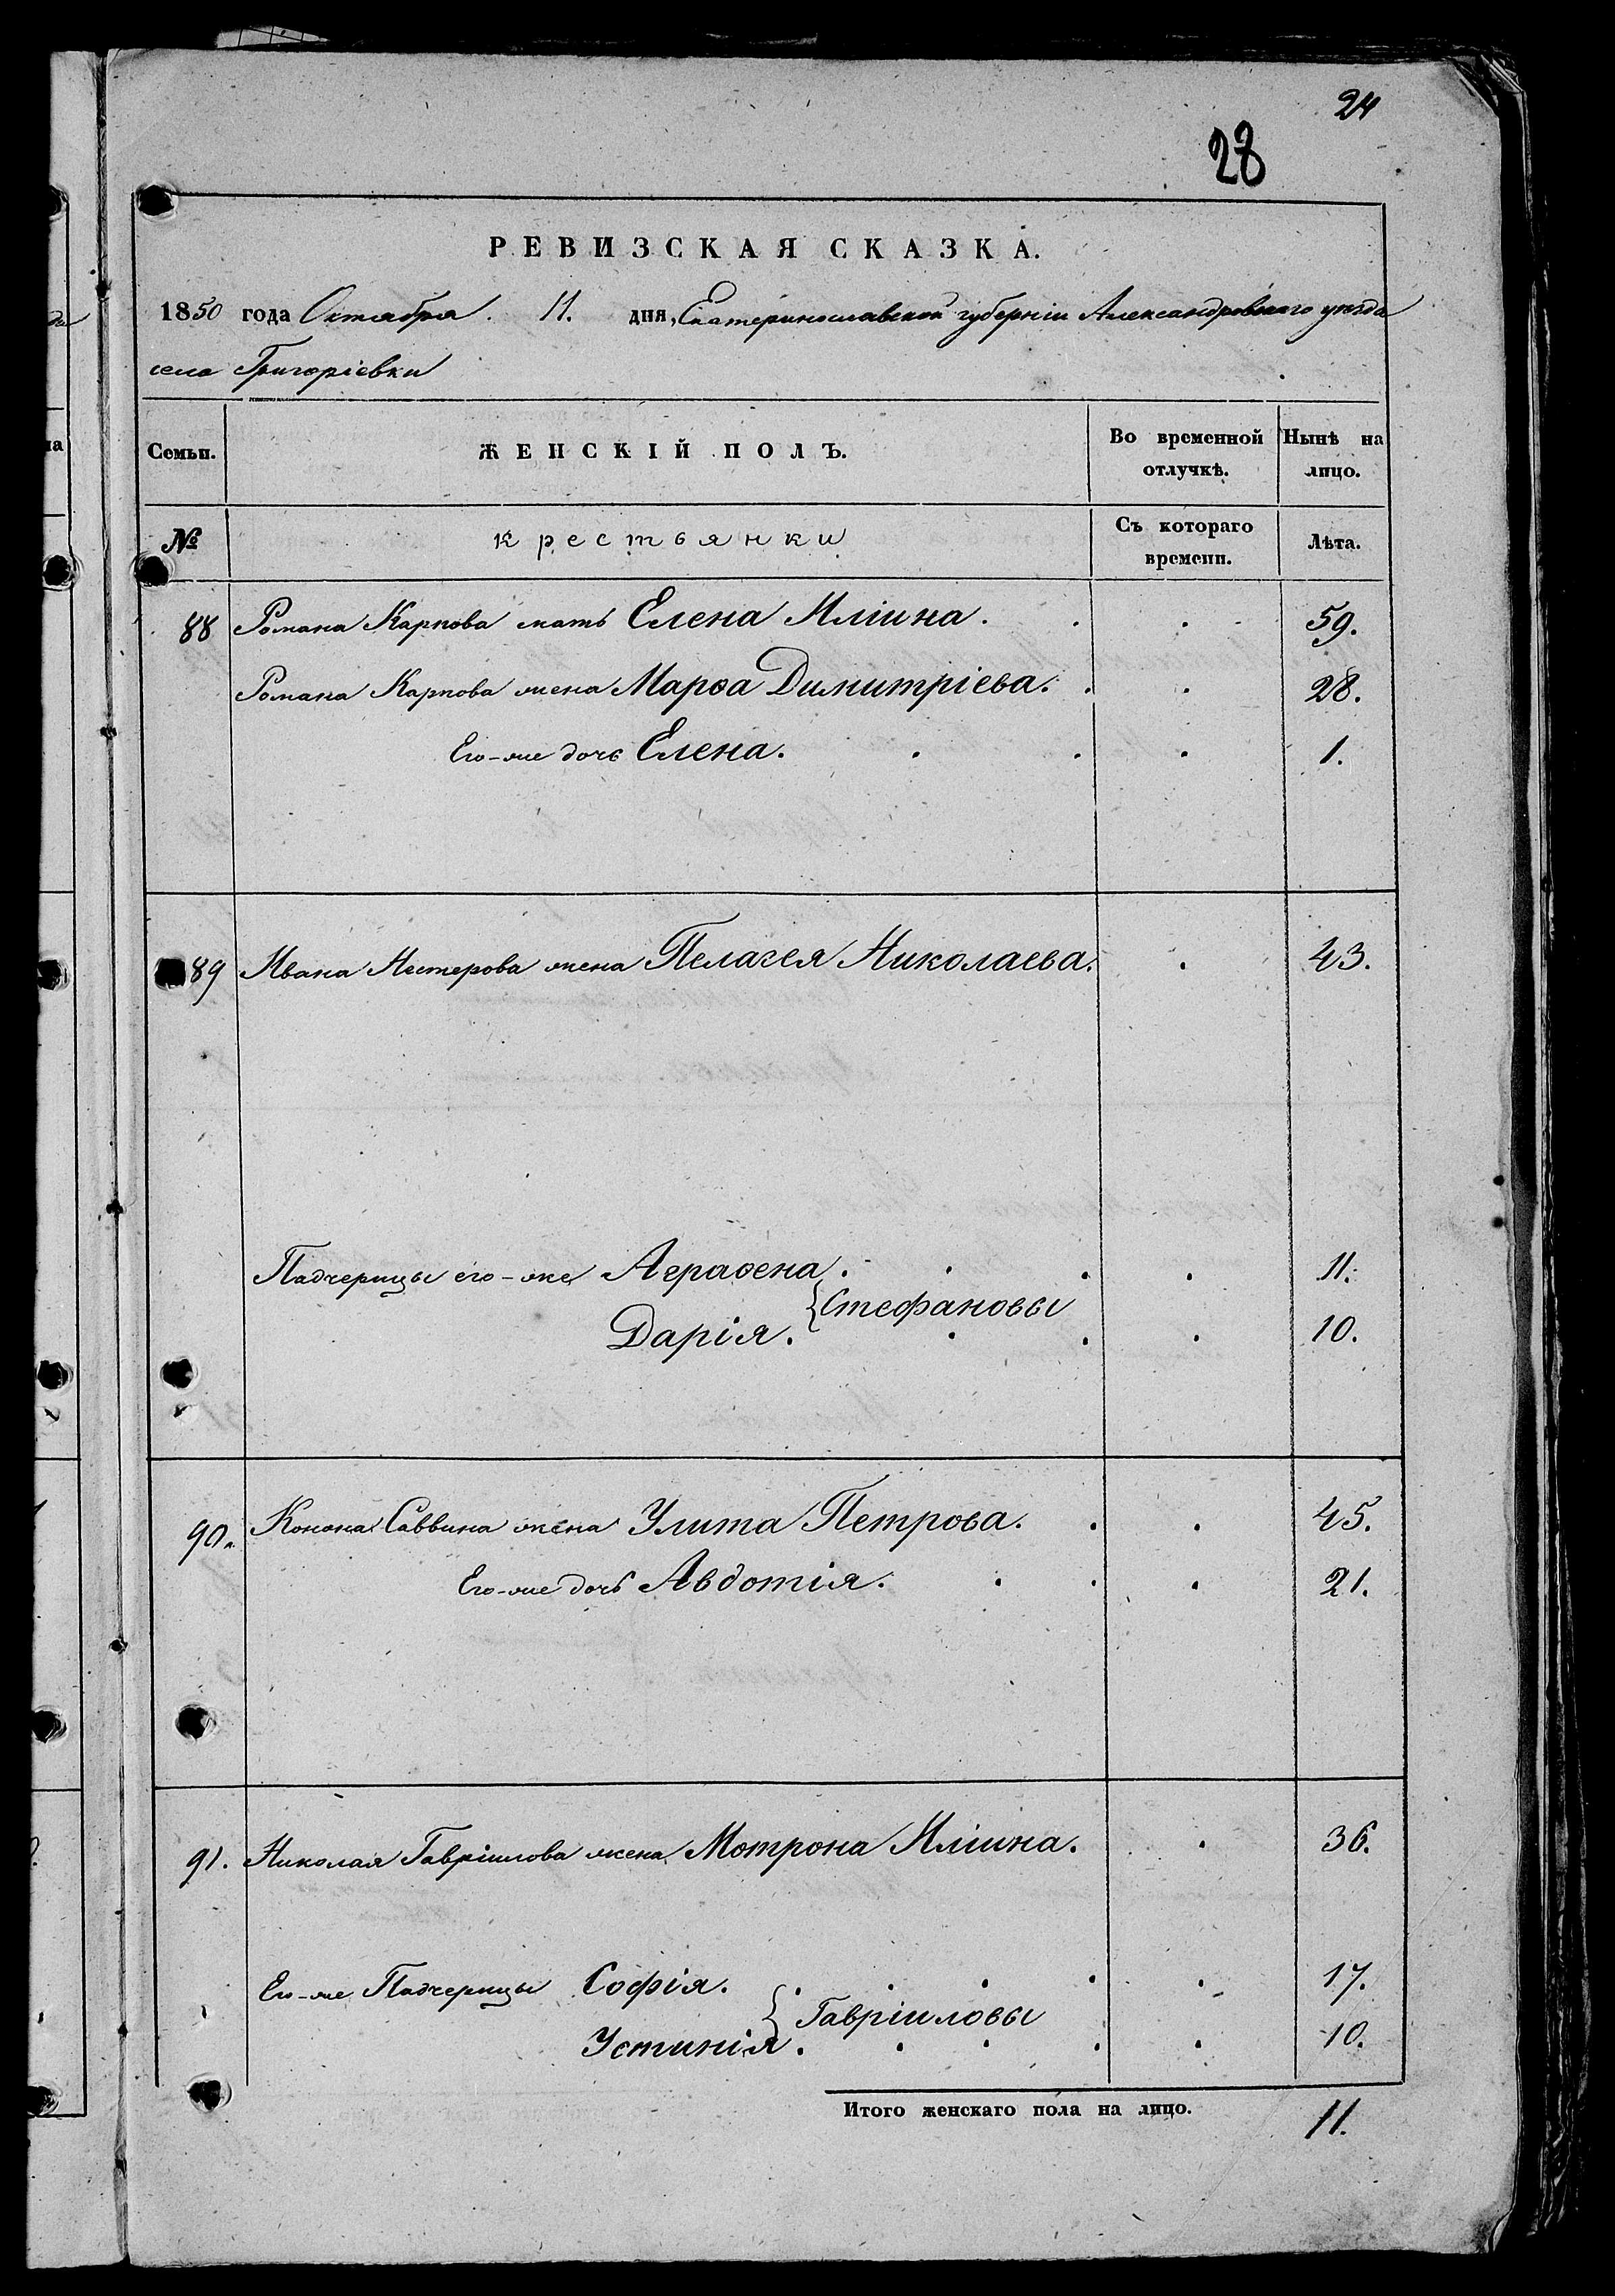 24
28
РЕВИЗСКАЯ СКАЗКА.
1850 года Октября. 11. дня, Екатеринославской губерніи Александровскаго уѣзда
села Григоріевки
Семьи. ЖЕНСКІЙ ПОЛЪ. Во временной отлучкѣ. Нынѣ на лицо.
№ крестьянки Съ котораго времени. Лѣта.
88 Романа Карпова мать Елена Иліина. 59.
Романа Карпова жена Марѳа Димитріева. 28.
Его-же дочь Елена. 1.
89 Ивана Нестерова жена Пелагея Николаева. 43.
Падчерицы его-же Аграѳена. 11.
{Стефановы
Дарія. 10.
90. Конона Саввина жена Улита Петрова. 45.
Его-же дочь Авдотія. 21.
91. Николая Гавріилова жена Мотрона Иліина. 36.
Его-же Падчерицы Софія. 17.
{Гавріиловы
Устинія. 10.
Итого женскаго пола на лицо. 11.